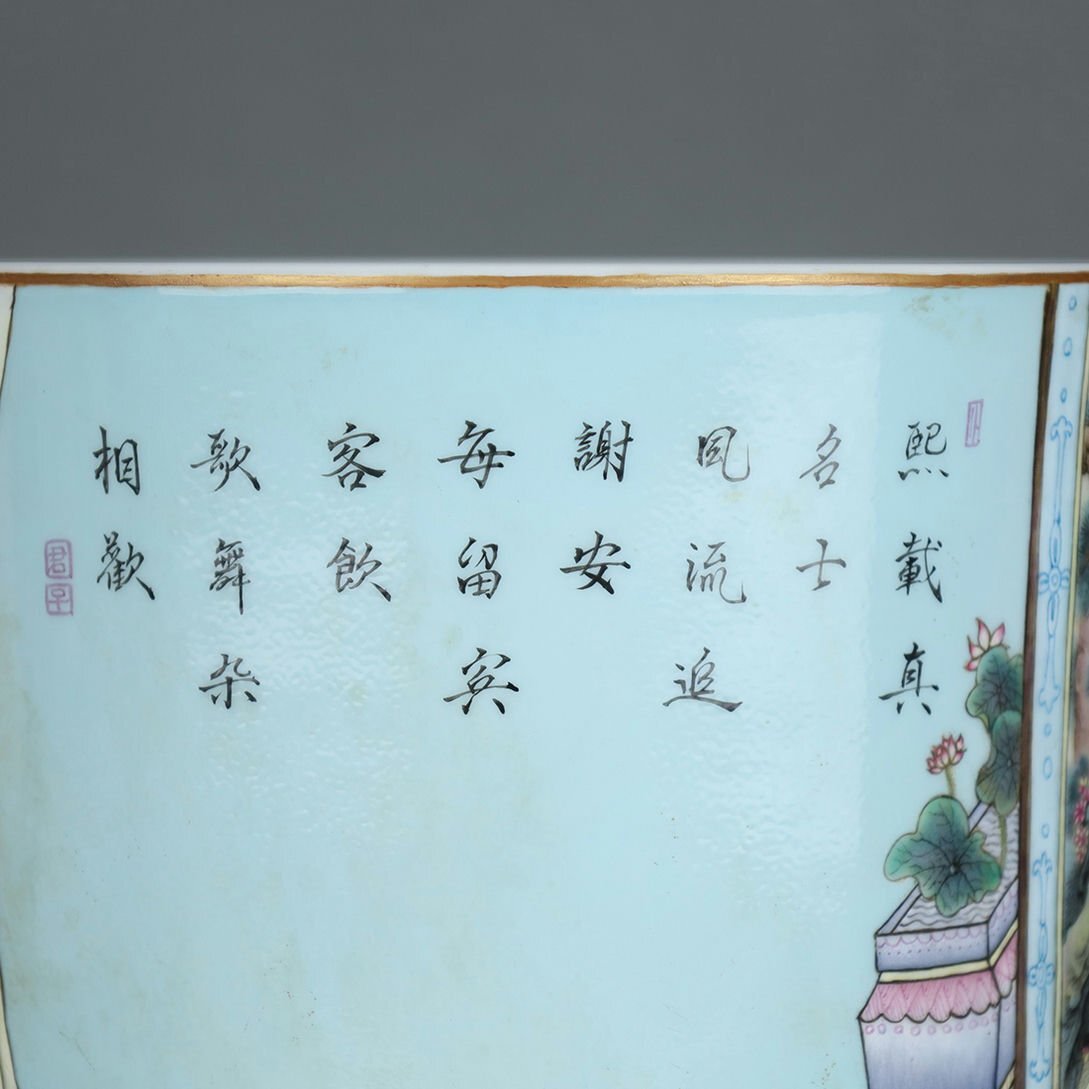 熙載真
名士
風流追
謝安
每留宾
客飲
歌舞杂
相歡
君子